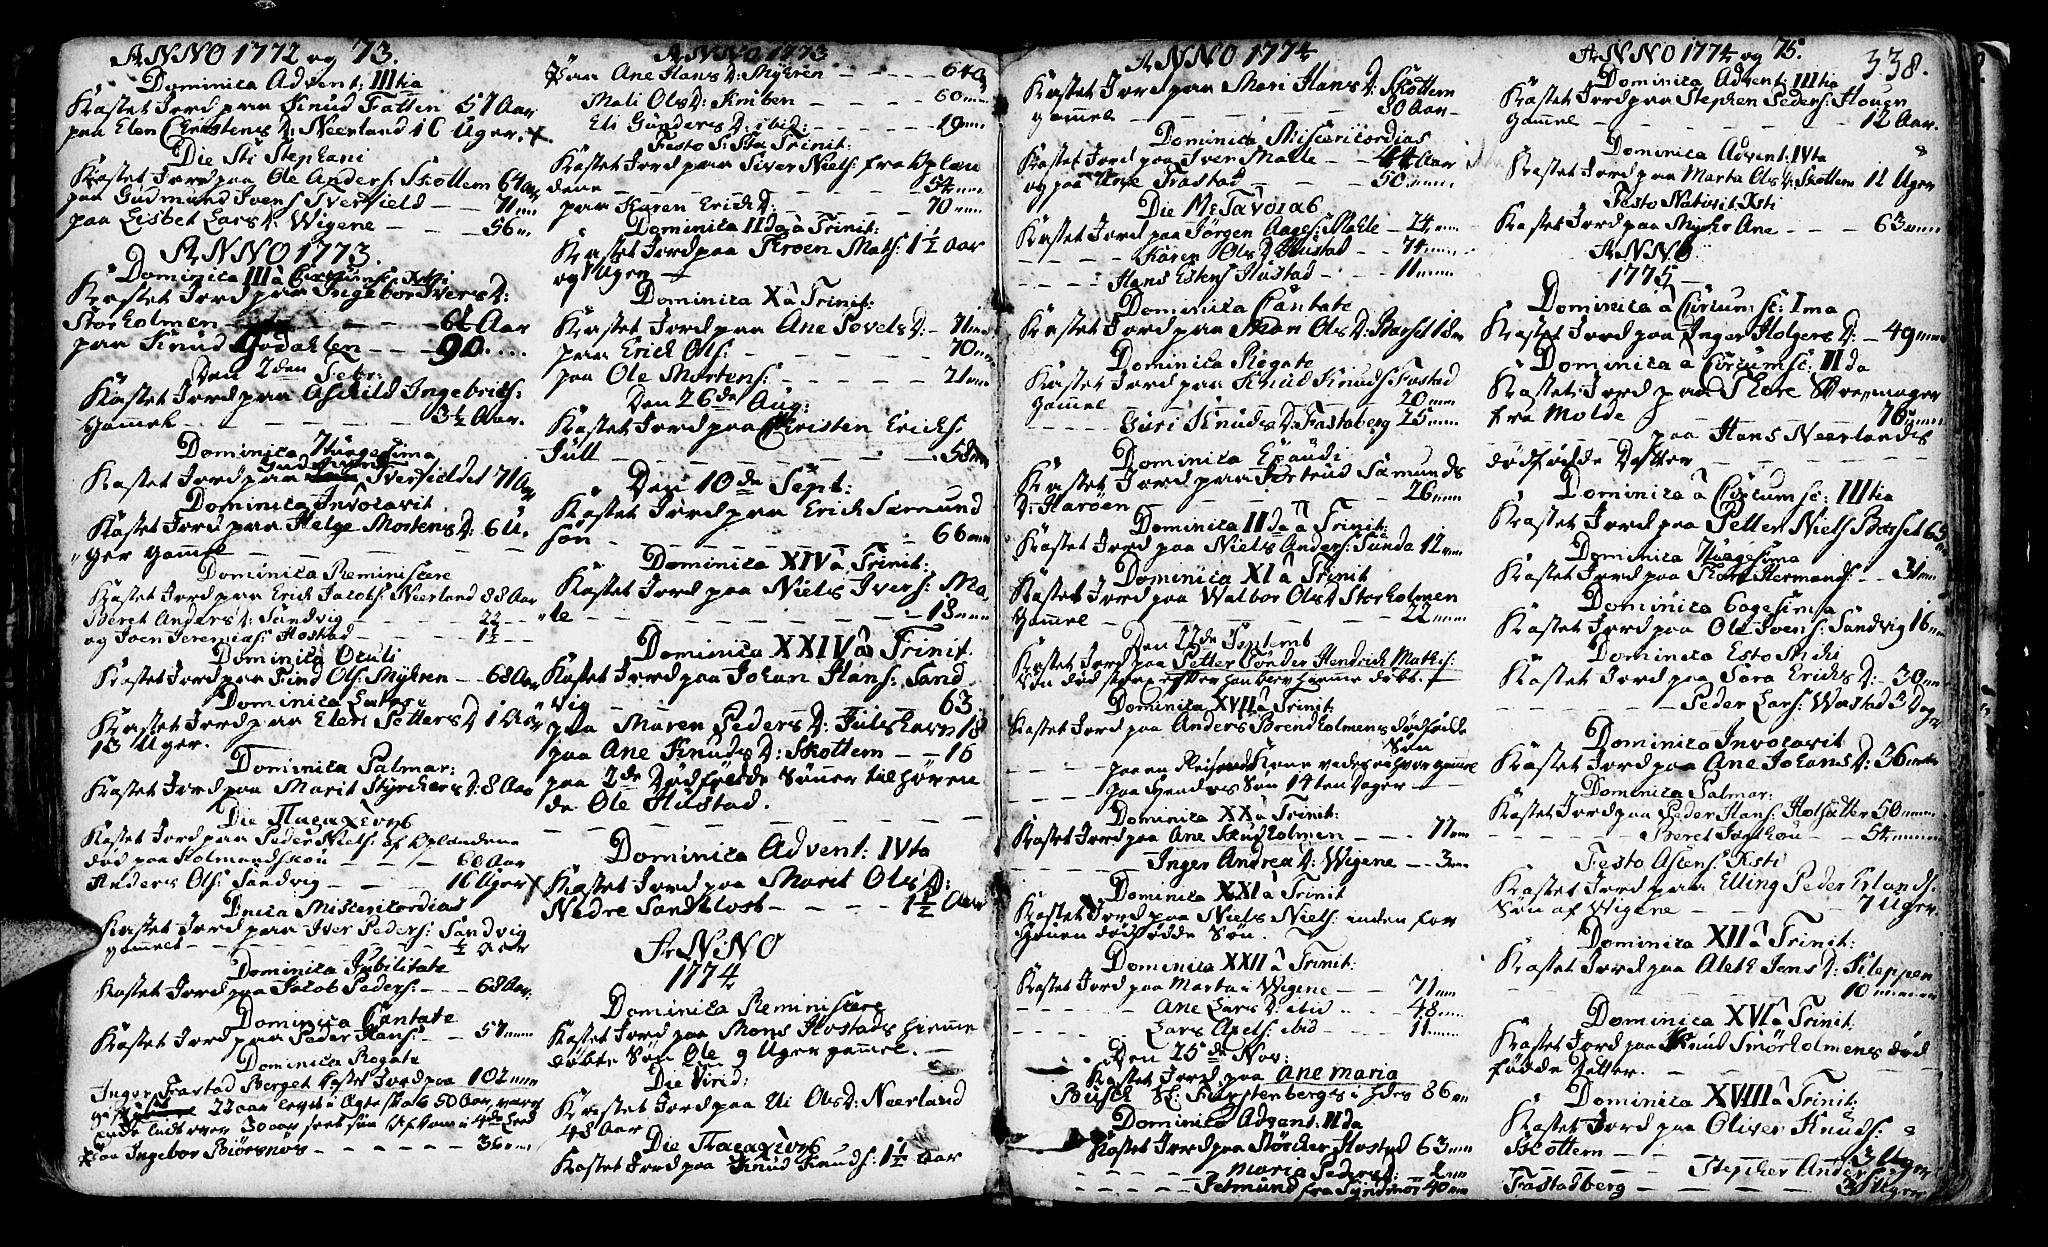 ANNO 1772 og 73.
Dominica Advent: IIItia
Kastet Jord paa Knud Tatten 57 Aar
paa Elen Christens D: Neerland 10 Uger.
Die Sti Stephani
Kastet Jord paa Ole Anders: Skottem 64 aar
paa Gudmund Ivers: Sverfield - - 71 mm
paa Lisbet Lars D: Wigene - - - 56 m.
ANNO 1773.
Dominica III à Circumcis: Xsti
Kastet Jord paa Ingebor Ivers D:
Storholmen - - - - 6½ Aar
paa Knud Godahlen - - - 90....
Den 2den Febr:
Kastet Jord paa Askild Ingebrits:
Gammel - - - - 3½ Aar.
Dominica 7tuagesima
Kastet Jord paa Sverfieldet 71 Aar
Dominica Invocavit
Kastet Jord paa Helge Mortens D: 6 U.
ger gammel - - - - -
Dominica Reminiscere
Kastet Jord paa Erich Jacobs: Neerland 88 Aar
Beret Anders D: Sandvig - - - - 22 - -
og Joen Jeremias: Hostad - - - - 1½ - -
Dominica Oculi
Kastet Jord paa Find Ols: Myhren - - 68 Aar
Dominica Lætare
Kastet Jord paa Elen Petters D: 1 Aar
13 Uger.
Dominica Palmar:
Kastet Jord paa Marit Styrchers D: 8 Aar
Die Παρασκευης
Kastet Jord paa Peder Niels: af Oplandene
død paa Holmandskou - - - 60 Aar
Anders Ols: Sandvig - - - - 16 Uger
Dnica Misericordias
Kastet Jord paa Iver Peders: Sandvig
gammel - - - - - ½ Aar
Dominica Jubilate
Kastet Jord paa Jacob Peders: - - - 68 Aar.
Dominica Cantate
Kastet Jord paa Peder Hans: - - 57 mm
Dominica Rogate
Inger Frastad Berget Kastet Jord paa 102 mm
22 aar levet i Ægteskab 50 Aar, været
Enke lidt over 30 aar seet sin Afkom i 4de Leed
paa Ingebor Biørsnøs - - - - - - 36 mm.
ANNO 1773
paa Ane Hans D: Myhren - - - - - 64 a
Mali Ols D: Kniben - - - - - 60 mm
Eli Gunders D: ibid: - - - - - 19 mm.
Festo S: Stæ Trinit:
Kastet Jord paa Siver Niels: fra Oplan
dene - - - - - - - - - 54 mm.
paa Karen Erich D: - - - - - 70 mm.
Dominica IIda à Trinit:
Kastet Jord paa Throen Mats: 1½ Aar
og 1 Ugen -
Dominica X à Trinit:
Kastet Jord paa Ane Povels D: - 71 mm
paa Erich Ols: - - - - - - 70 mm
paa Ole Mortens: - - - - - - 21 mm
Den 26de Aug:
Kastet Jord paa Christen Erichs:
Jull - - - - - - - - - 58 mm
Den 10de Sept:
Kastet Jord paa Erich Sæmund
søn - - - - - - - - 66 mm
Dominica XIV à Trinit:
Kastet Jord paa Niels Ivers: Ma,
"le - - - - - - - - - 18 mm
Dominica XXIV à Trinit.
Kastet Jord paa Johan Hans: Sand
vig - - - - - - - - - 63
paa Maren Peders D: Julshavn 18
paa Ane Knuds D: Skottem - - 16
paa 2de Dødfødde Sønner tilhøren
de Ole Hustad.
Dominica Advent: IVta
Kastet Jord paa Marit Ols D:
Nedre Sandblost - - - - - 1½ Aar
ANNO
1774
Dominica Reminiscere
Kastet Jord paa Mons Hostads hiemme
døbte Søn Ole 9 Uger gammel. -
Die Virid:
Kastet Jord paa Ui Ols D: Neerland
48 Aar
Die Παρασκευης
Kastet Jord paa Knud Knuds: 1½ Aar
ANNO 1774
Kastet Jord paa Mari Hans D: Skottem
gammel - - - - - - - 80 Aar -
Dominica Misericordias
Kastet Jord paa Iver Malle - - 44 Aar
og paa Ane Frastad - - - 50 mm.
Die
Kastet Jord paa Jørgen Aages: Mahle - 24 mm
- - - - - Karen Ols D: Hustad - - 74 mm
- - - - Hans Estens: Hustad - - - 11 mm
Dominica Cantate
Kastet Jord paa Ols D: Barset
Dominica Rogate
Kastet Jord paa Knud Knuds: Frostad
gammel - - - - - - - 20 mm
- - - - - Guri Knuds D: Frostaberg 25 mm.
Dominica Exaudi
Kastet Jord paa Jertrud Sæmunds
D: Harøen - - - - - - - 26 mm
Dominica IIda à Trinit:
Kastet Jord paa Niels Anders: Sunda 12 mm
Dominica XI à Trinit
Kastet Jord paa Walbor Ols D Storholmen
Gammel - - - - - - - 22 mm
Den 22de Septemb
Kastet Jord paa Petter Tønder Hendrich Mathis:
Søn død strax efter han bev: hiemme døbt.
Dominica XVII à Trinit:
Kastet Jord paa Anders Brendholmens dødfødde
Søn
- - - - paa en Reisende Kone vedes ei hvor gammel
- - - - paa hendes Søn 14ten Dager - -
Dominica XX à Trinit:
Kastet Jord paa Ane Skudholmen - - - 77 mm
- - - - - Inger Andrea D: Wigene - - 3 mm
Dominica XXI à Trinit
Kastet Jord paa Niels Niels: inden for
Gauen dødfødde Søn.
Dominica XXII à Trinit:
Kastet Jord paa Marta i Wigene - - - 71 mm
- - - - - Ane Lars D: ibid - - - 48 mm
- - - Lars Axels: ibid - - - - 11 mm
Den 25de Nov:
Kastet Jord paa Ane Maria
Busch Sl: Fürstenbergs i hdes 86 mm
Dominica Advent: IIda
Kastet Jord paa Størcher Hostad 63 mm
- - - - - Maria Peders D: - 2 mm
- - - - Jetmund fra Syndmør 40 mm
ANNO 1774 og 75.
338.
Dominica Advent: IIItia
Kastet Jord paa Stephen Peders: Hougn
gammel - - - - - - - 12 Aar.
Dominica Advent: IVta
Kastet Jord paa Marta Ols D: Skottem 11 Uger
Festo Nativit: Xsti
Kastet Jord paa Myhr Ane - - - 63 mm
ANNO
1775
Dominica à Circumsc: Ima
Kastet Jord paa Inger Holgers D: - 49 mm
Dominica à Circumsc: IIda
Kastet Jord paa Thore Skoemager
fra Molde - - - - - - - 76 mm
- - - - - - paa Hans Neerlandes
dødfødde Dotter - - - - - -
Dominica à Circumsc: IIItia
Kastet Jord paa Petter Niels: Barset 65
Dominica 7tuagesima
Kastet Jord paa Thore Hermands: - - 31 mm
Dominica 6agesima
Kastet Jord paa Ole Ivers: Sandvig 16 mm
Dominica Esto Mihi
Kastet Jord paa Sara Erichs D: - 30 mm
- - - - - - Peder Lars: Wastad 3 Dag
Dominica Invocavit
Kastet Jord paa Ane Johans D: 36 mm
Dominica Palmar:
Kastet Jord paa Peder Hans: Holsætter 50 mm
- - - - - - Beret Farthou - - - 54 mm
Festo Ascens: Xsti
Kastet Jord paa Elling Peder Erlands:
Søn af Wigene - - - - - 7 Uger.
Dominica XII à Trinit:
Kastet Jord paa Aleth Jens D: Kleppen
- - - - - - - - - - - 10 mm
Dominica XVI à Trinit:
Kastet Jord paa Knud Smørholmens død
fødde Dotter. - - - - -
Dominica XVIII à Trinit:
Kastet Jord paa Oliver Knuds:
Skottem - - - - - - 3 Uger
- - Stephen Anders:
Frastadberg - - - - - 3 Uger